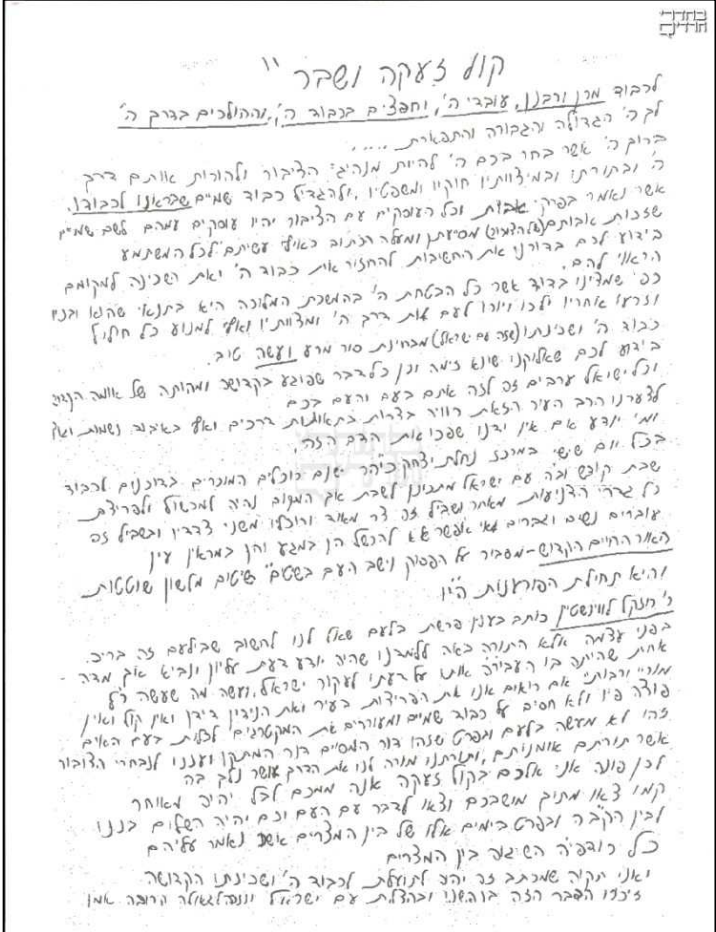 בחדרי
חרדים
קול זעקה ושבר "
לכבוד מרן ורבנן, עובדי ה', וחפצים בכבוד ה', וההולכים בדרך ה'
לב ה' הגדולה והגבורה והתפארת .....
ברוך ה' אשר בחר בכם ה' להיות מנהיגי הציבור ולהורות אותם דרך
ה' ובתורתו ובמיצוותיו חוקיו ומשפטיו, ולהגדיל כבוד שמיים שבראנו לכבודו.
אשר נאמר בפרקי אבות וכל העוסקים עם הציבור יהיו עוסקים עמהם לשם שמיים
שזכות אבותם מסייעתן ומעלה הכתוב כאילו עשיתם לכל המשתמע
בידוע לכם בדורנו את החשיבות להחזיר את כבוד ה' ואת השכינה למקומם
הראוי להם.
כפי שמצינו בדוד אשר כל הבטחת ה' בהמשכת המלוכה היא בתנאי שהוא ובניו
וזרעו אחריו ילכו ויורו לעם את דרך ה' ומצוותיו ואף למנוע כל חילול
כבוד ה' ושכינתו (שזה עם ישראל) מבחינת סור מרע ועשה טוב.
בידוע לכם שאלוקנו שונא זימה וכן כל דבר שפוגע בקדושה ומהותה של אומה
וכל ישראל ערבים זה לזה אתם בעם והעם בכם
לצערנו הרב העיר הזאת רוויה בצרות בתאונות דרכים ואף באיבוד נשמות
ומי יודע אם אין ידנו שפכו את הדם הזה.
בכל יום שישי במרכז נחלת יצחק ישנם רוכלים המוכרים בדוכנים לכבוד
שבת קודש ובה עם ישראל מתכונן לשבת אך המקום נהיה למכשול ולפריצת
כל גדרי הצניעות מאחר ושביל זה צר מאוד ורוכליו משני צדדיו ובשביל זה
עוברים נשים וגברים אי אפשר שלא להכשל הן במגע והן במראין עין
האור החיים הקדוש - מסביר על הפסוק וישב העם בשטים" שיטום מלשון שוטטות
והיא תחילת הפורענות
ר' יחזקל לווינשטין כותב בענין פרשת בלעם שאל לנו לחשוב שבילעם זה בריה
בפני עצמה אלא התורה באה ללמדנו שהיה יודע דעת עליון ונביא אך מדה
אחת שהייתה בו העבירה אותו על דעתו לעקור ישראל, ועשה מה שעשה
מוריי ורבותי אם רואים אנו את הפריצות בעיר ואת הנידון דידן ואין קול ואין
פוצה פיו ולא חסים על כבוד שמיים ומעוררים את המקטרגים לכלות בעם האים
זהו לא מעשה בלעם ובפרט שזהו דור המסיים דור המתקן ועננו לנבחרי הצובור
אשר תורתם אומנותם, ותורתנו מורה לנו את הדרך אשר נלך בה
לכן פונה אני אלכם בקול זעקה אנה ממכם לבל יהיה מאוחר
קמו צאו מתוך מושבכם וצאו לדבר עם העם וכם יהיה השלום בננו
לבין הקב"ה ובפרט בימים אלו של בין המצרים אשר נאמר עליהם
כל רודפיה השיגוה בין המצרים
ואני תקוה שמכתב זה יהיה לתועלת לכבוד ה' ושכינתו הקדושה
הדבר הזה בהצלת עם ישראל לגאולה הרובה אמן